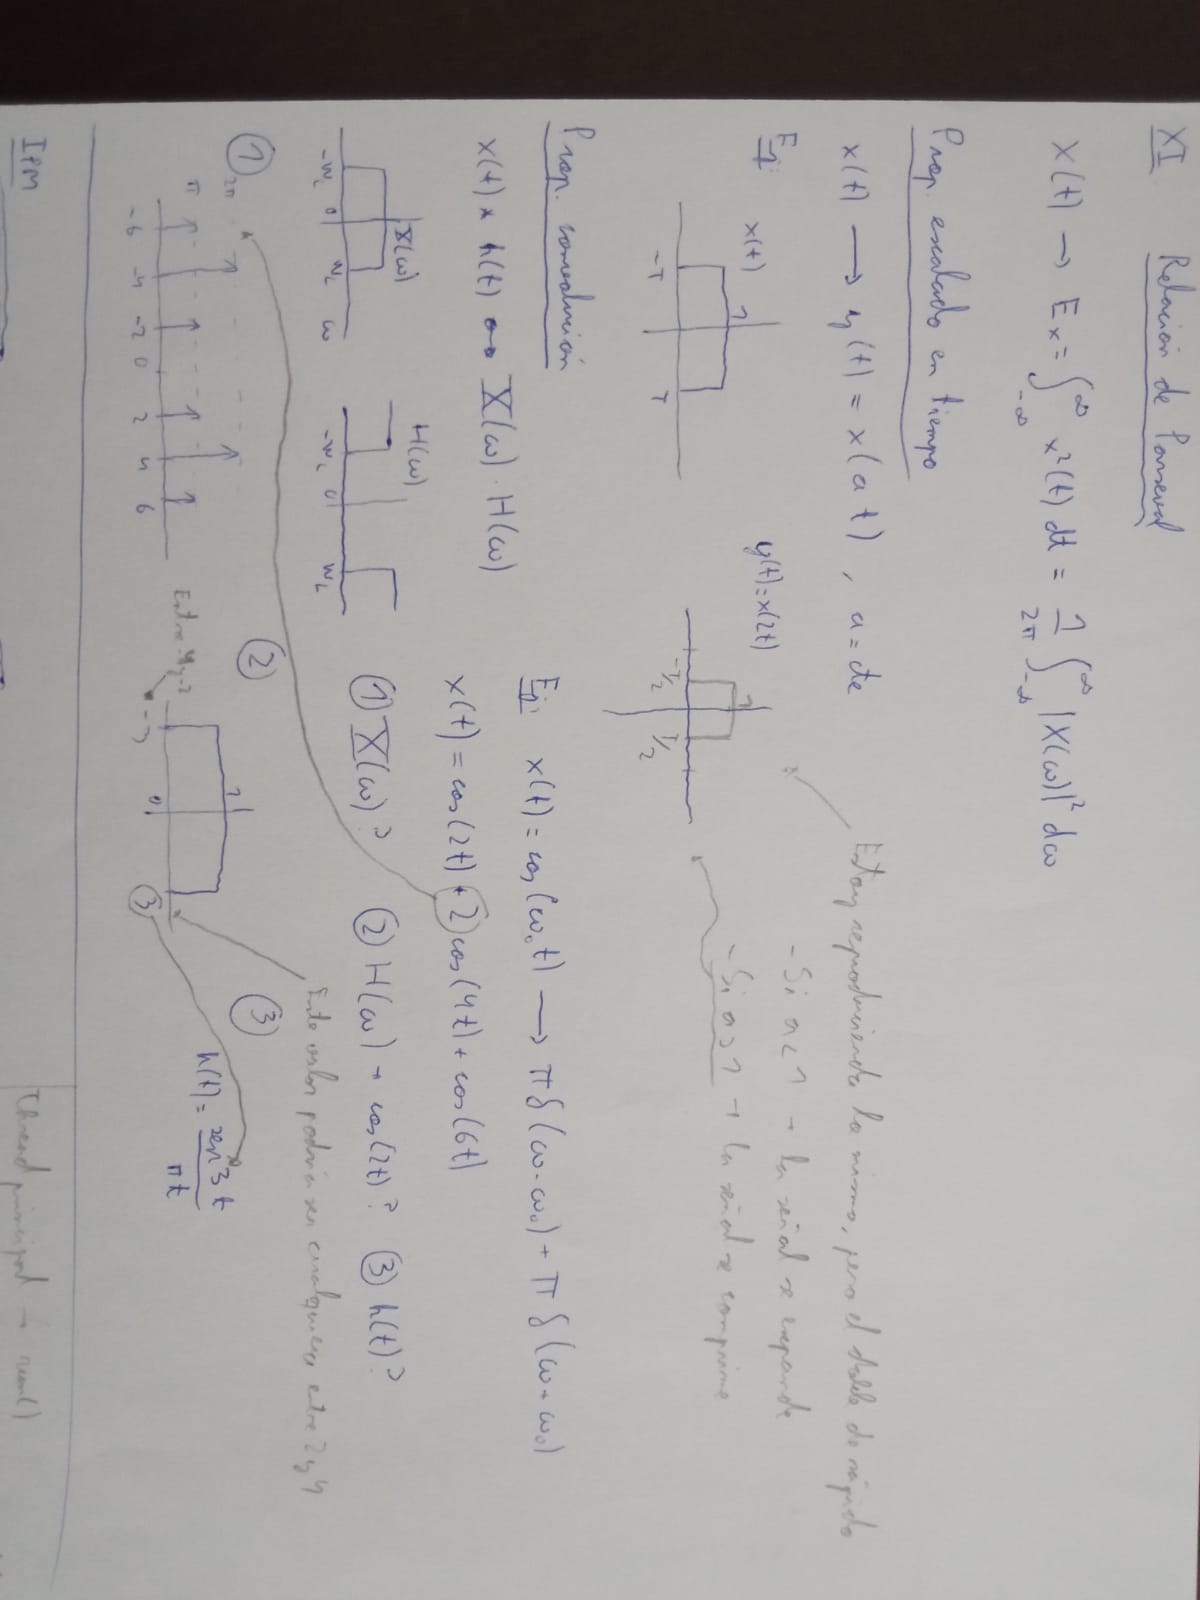 XI Relación de Parseval
x(t) → Ex = ∫_{-∞}^{∞} x²(t) dt = 1/2π ∫_{-∞}^{∞} |X(ω)|² dω
Prop. escalado en tiempo
x(t) → y(t) = x(a t) , a = cte
Estoy reproduciendo lo mismo, pero el doble de rápido
- Si a < 1 → la señal se expande
- Si a > 1 → la señal se comprime
Ej:
x(t)
1
-T T
y(t) = x(2t)
1
-T/2 T/2
Prop. convolución
x(t) * h(t) ↔ X(ω) · H(ω)
X(ω)
-WL 0 WL ω
H(ω)
-WL 0 WL
Ej: x(t) = cos(ω₀t) → πδ(ω-ω₀) + πδ(ω+ω₀)
x(t) = cos(2t) + 2cos(4t) + cos(6t)
① X(ω)? ② H(ω) → cos(2t)? ③ h(t)?
Este valor podría ser cualquiera entre 2 y 4
①
2π
π
-6 -4 -2 0 2 4 6
②
1
Entre -4 y -2
-3 0 3
③
h(t) = sen 3t / πt
IPM
Thread principal → run()